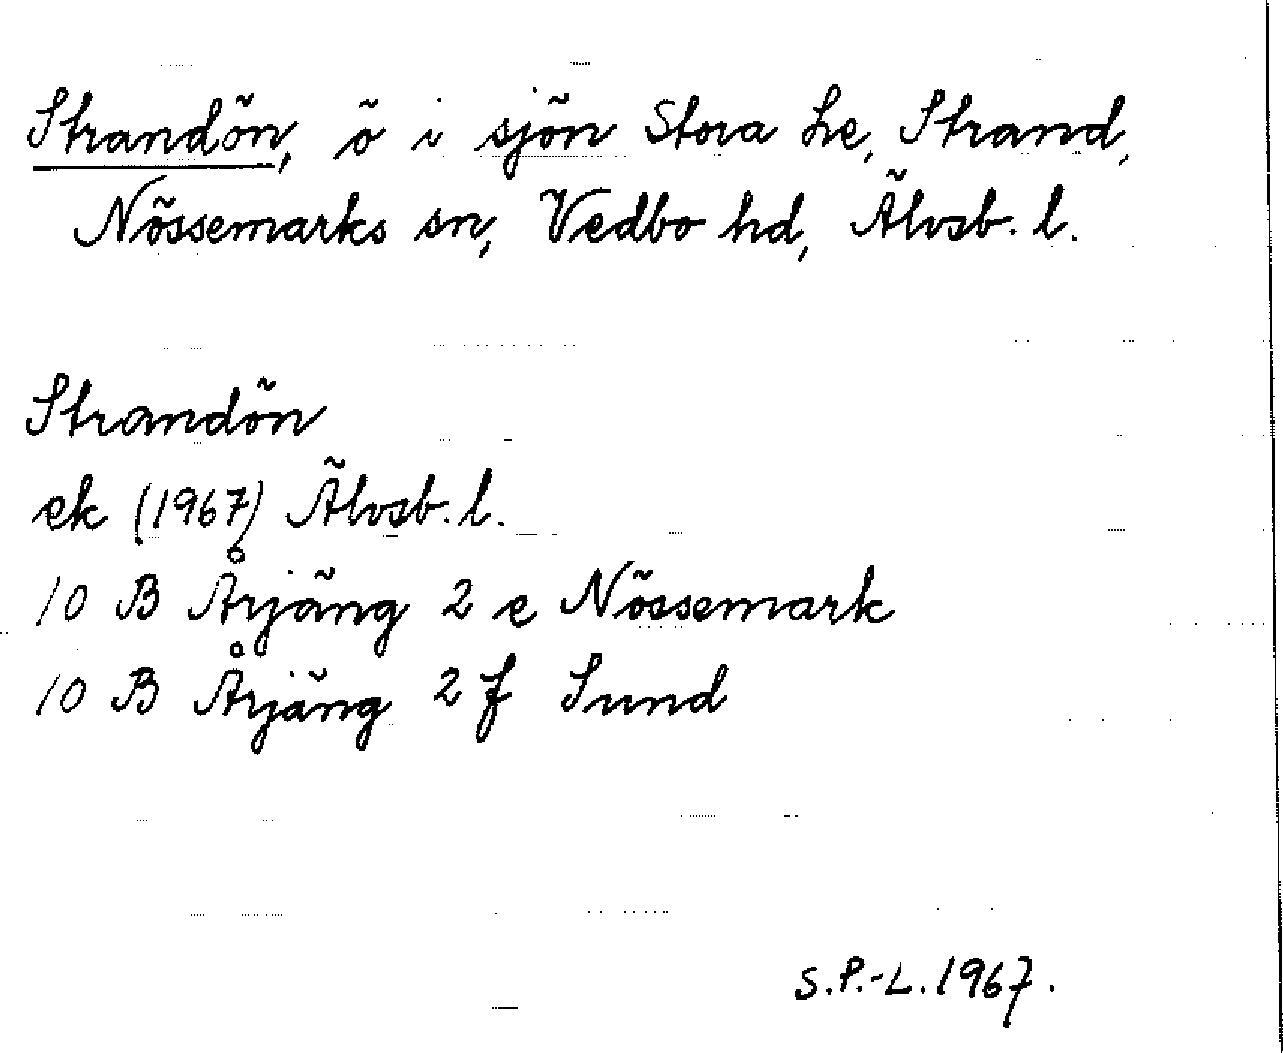 Strandön, ö i sjön Stora Le, Strand,
Nössemarks sn, Vedbo hd, Älvsb. l.
Strandön
ek (1967) Älvsb. l.
10 B Årjäng 2 e Nössemark
10 B Årjäng 2 f Sund
S.P.-L. 1967.